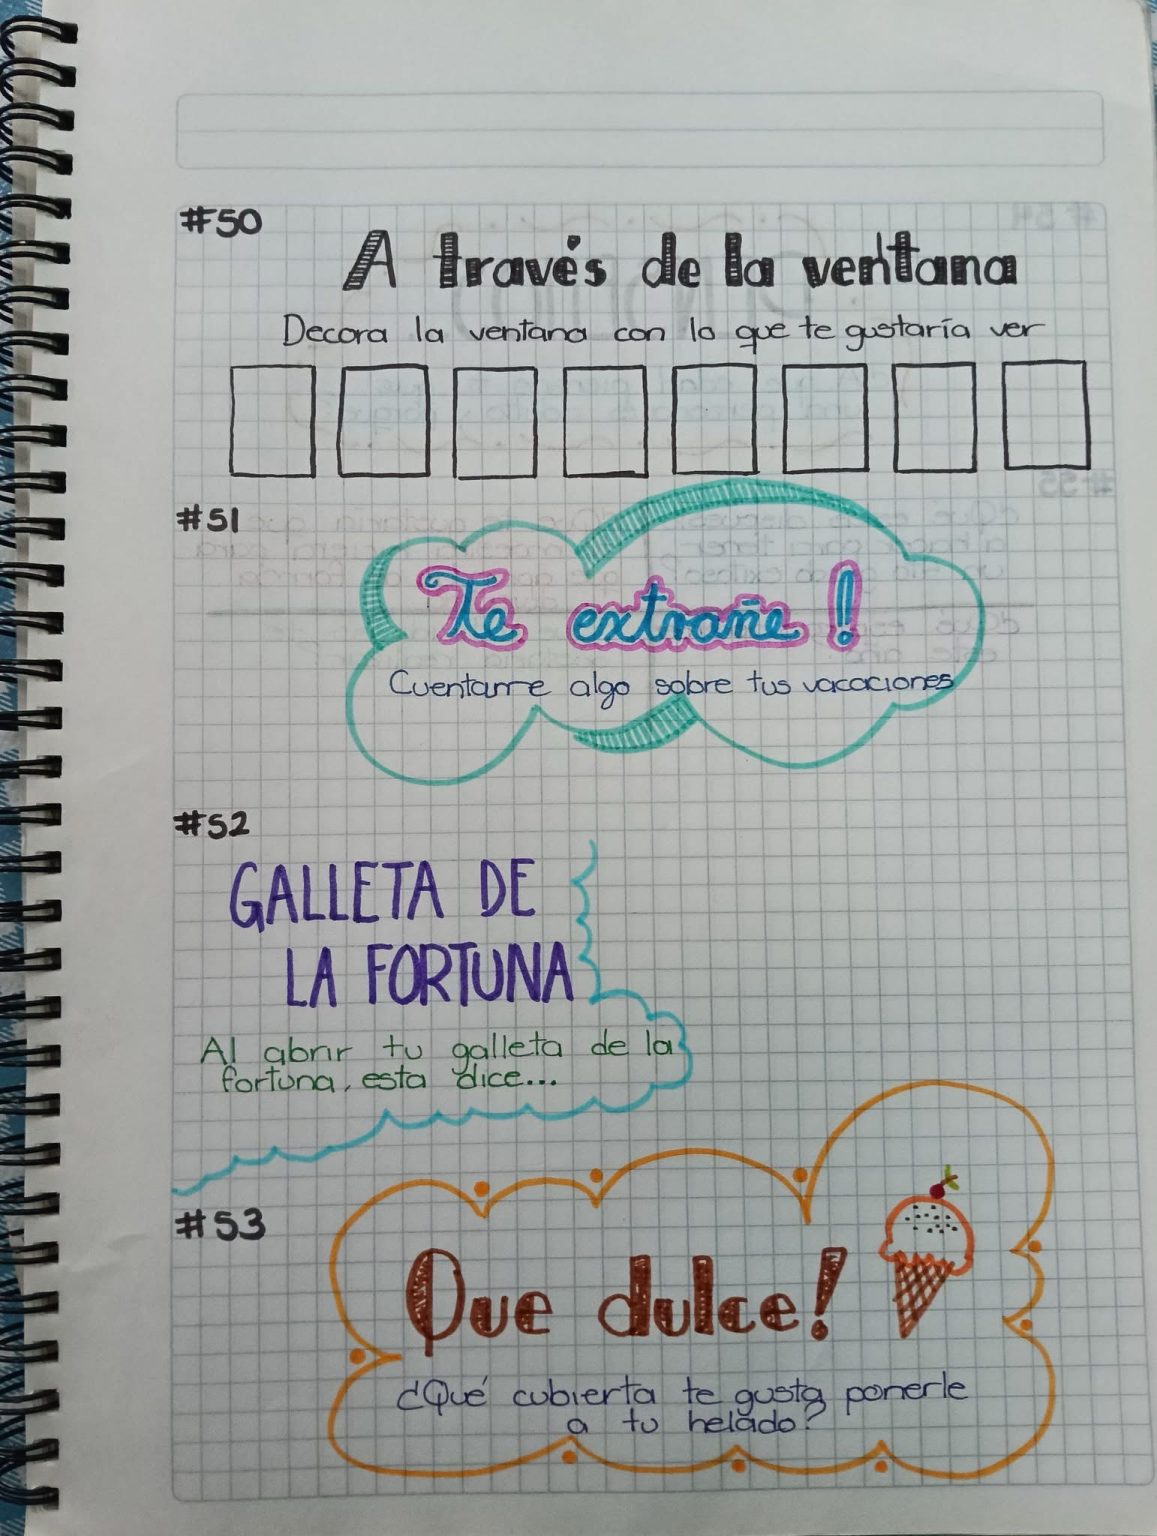 #50
A través de la ventana
Decora la ventana con lo que te gustaría ver
#51
Te extrañe!
Cuentame algo sobre tus vacaciones
#52
GALLETA DE
LA FORTUNA
Al abrir tu galleta de la
fortuna, esta dice...
#53
Que dulce!
¿Qué cubierta te gusta ponerle
a tu helado?